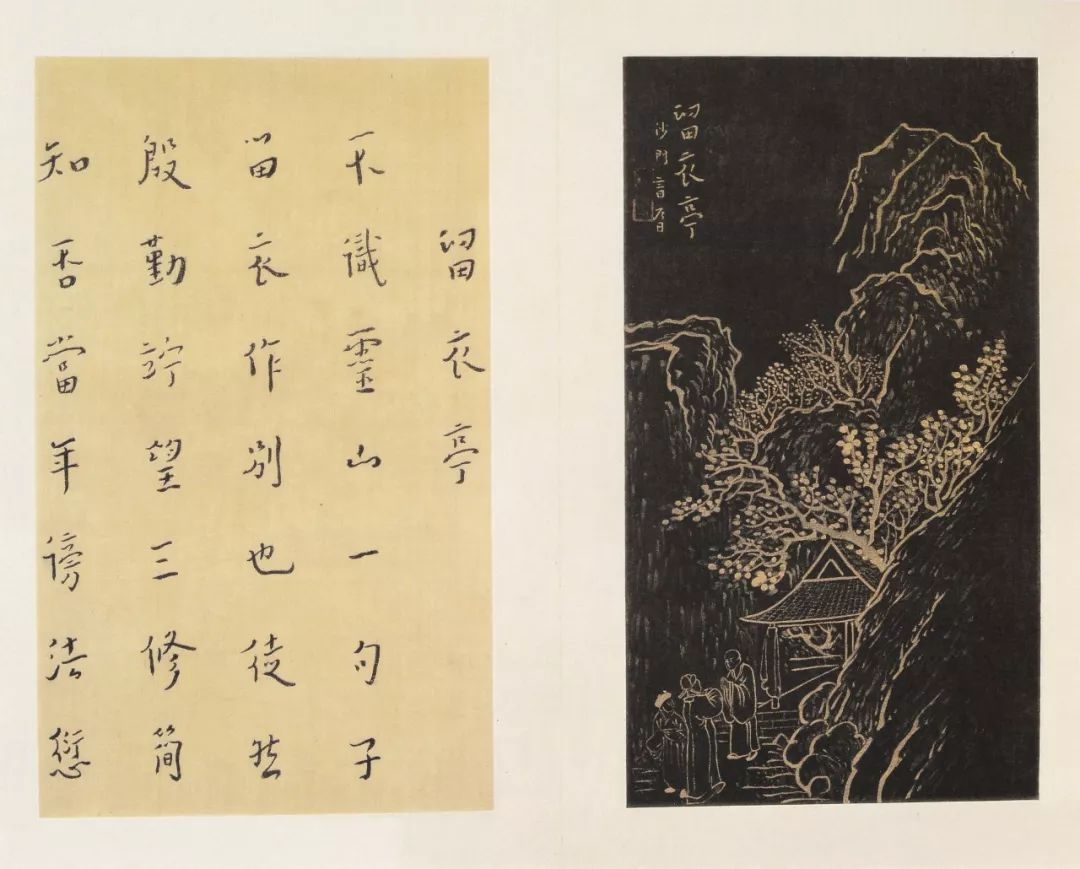 留衣亭
沙門
留衣亭
不識靈山一句子
留衣作別也徒然
殷勤竚望三修簡
知否當年傍法愆